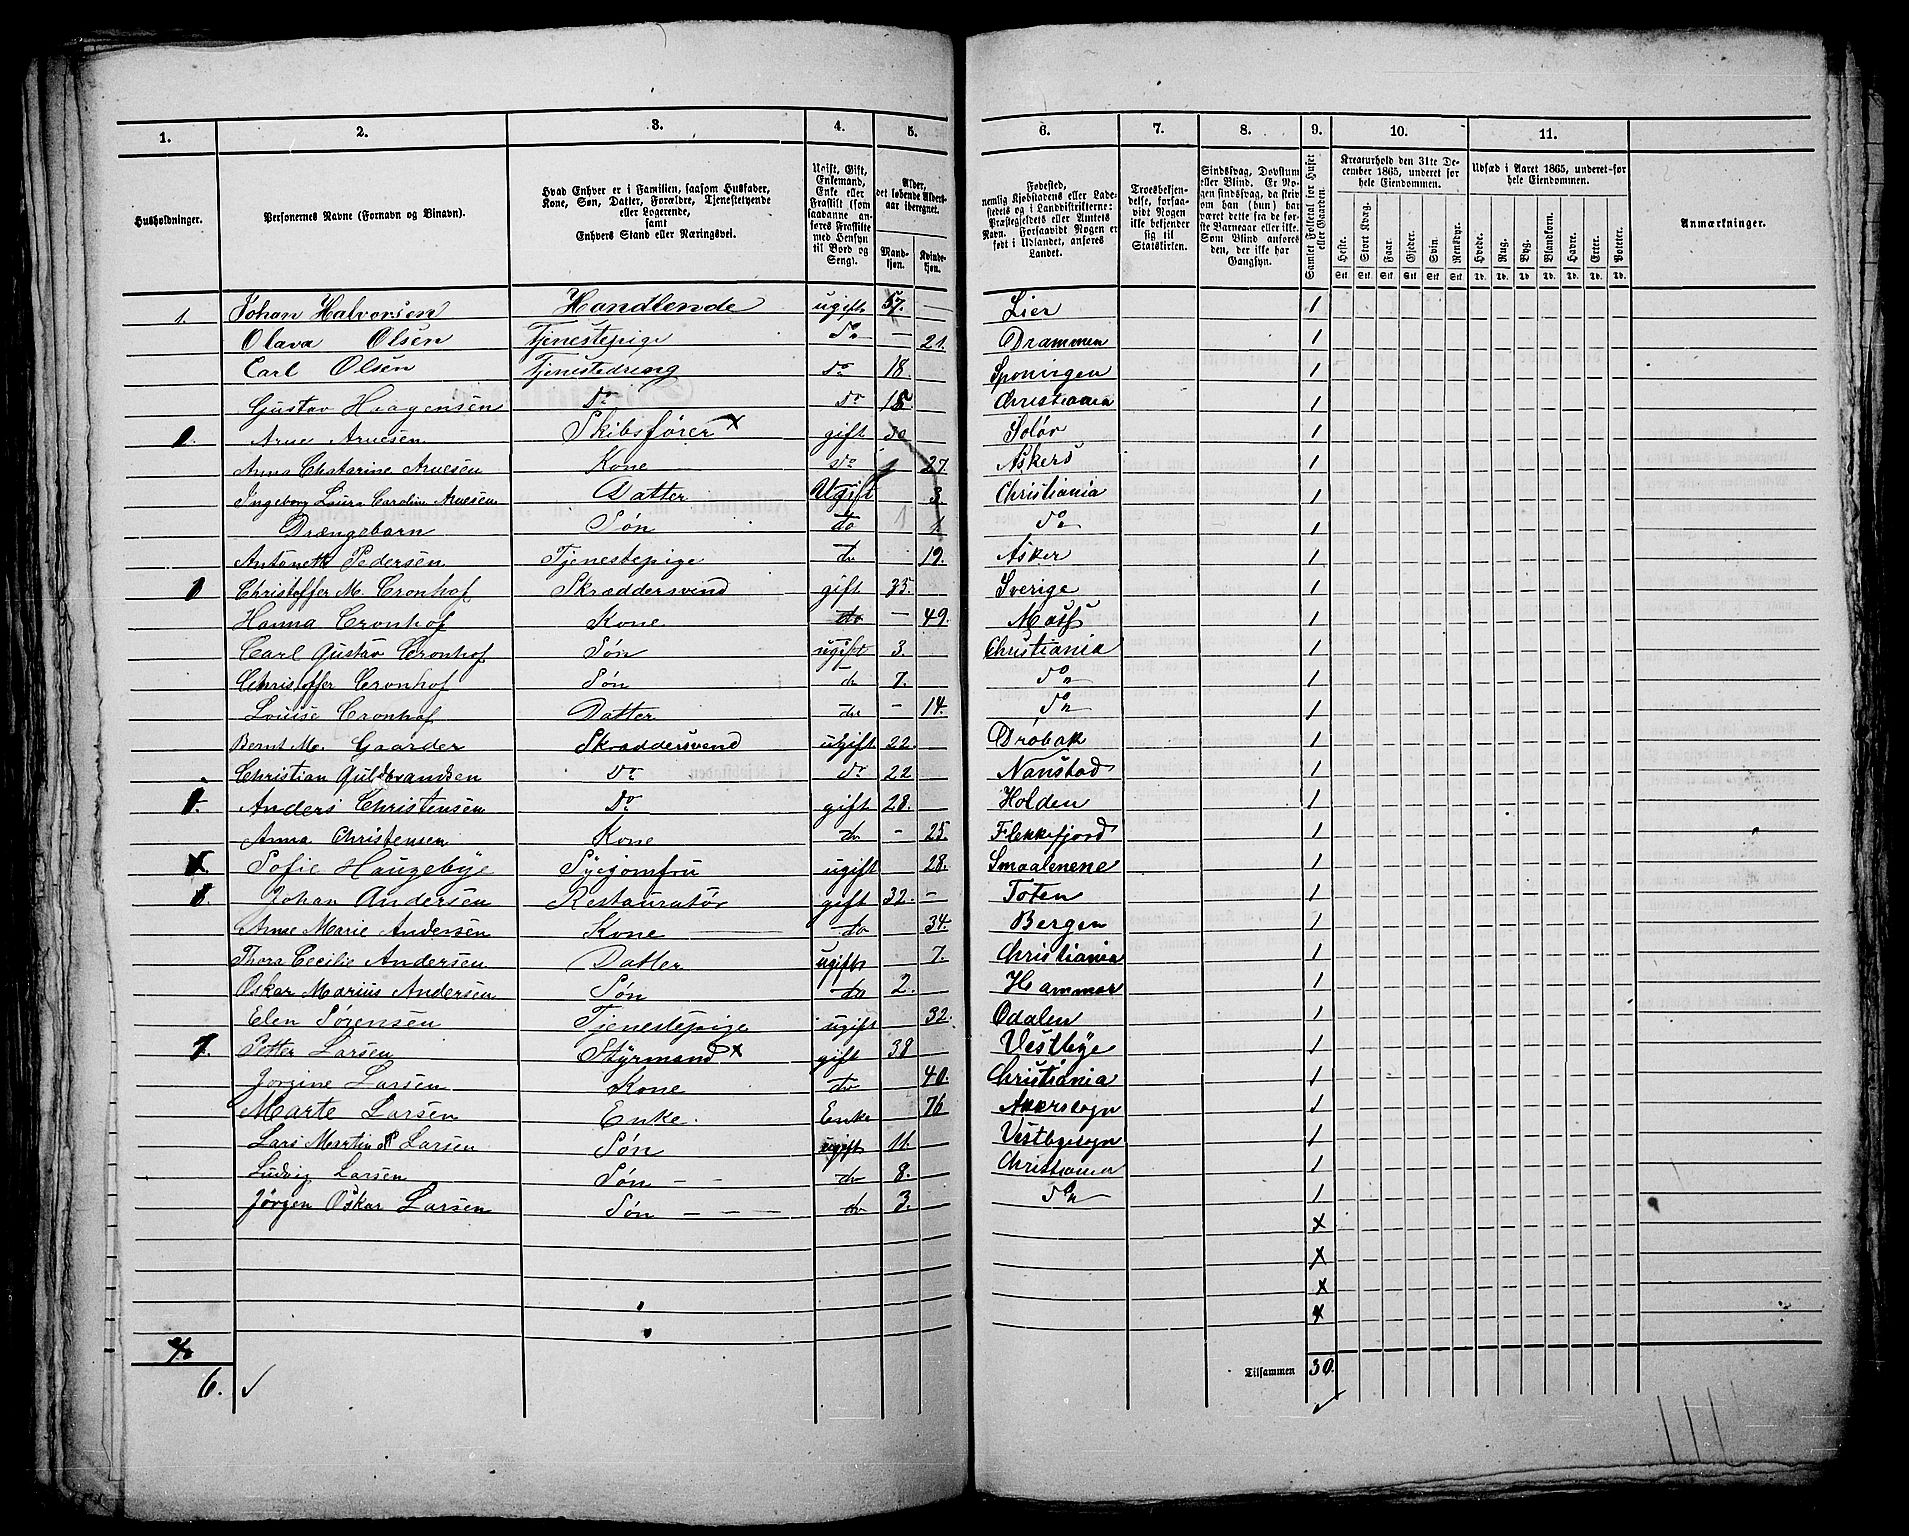 1. 2. 3. 4. 5. 6. 7. 8. 9. 10. 11.
Husholdninger.
Personernes Navne (Fornavn og Binavn).
Hvad Enhver er i Familien, saasom Husfader,
Kone, Søn, Datter, Forældre, Tjenestetyende
eller Logerende,
samt
Enhvers Stand eller Næringsvei.
Ugift, Gift,
Enkemand,
Enke eller
Fraskilt (som
saadanne an-
føres Fraskilte
med Hensyn
til Bord og
Seng).
Alder,
det løbende Alders-
aar iberegnet.
Mand-
kjøn.
Kvinde-
kjøn.
Fødested,
nemlig Kjøbstadens eller Lade-
stedets og i Landdistrikterne:
Præstegjeldets eller Amtets
Navn. Forsaavidt Nogen er
født i Udlandet, anføres
Landet.
Troesbekjen-
delse, forsaa-
vidt Nogen
ikke bekjender
sig til
Statskirken.
Sindssvag, Døvstum
eller Blind. Er No-
gen sindssvag, da skriv
om han (hun) har
været dette fra de før-
ste Barneaar eller ikke.
Som Blind anføres
den, der ikke har
Gangsyn.
Samlet Folketal for Huset
eller Gaarden.
Kreaturhold den 31te De-
cember 1865, underet for
hele Eiendommen.
Heste. Stort Kvæg. Faar. Gjeder. Svin. Rensdyr.
Stk. Stk. Stk. Stk. Stk. Stk.
Udsæd i Aaret 1865, underet-for
hele Eiendommen.
Hvede. Rug. Byg. Blandkorn. Havre. Erter. Poteter.
Td. Td. Td. Td. Td. Td. Td.
Anmærkninger.
1. Johan Halvorsen Handlende ugift 57. — Lier 1
Olava Olsen Tjenestepige do — 21. Drammen 1
Carl Olsen Tjenestedreng do 18 1
Gustav Haagensen do do 15 Christiania 1
Arne Arnesen Skibsfører x gift Solør 1
Anna Arnesen Kone do 27. Askers 1
Ingeborg Laura Caroline Arnesen Datter Ugift 3. Christiania 1
Drængebarn Søn do 1 1. do 1
Pedersen Tjenestepige do 19. Asker 1
Christoffer M. Cronhof Skræddersvend gift 35. Sverige 1
Hanna Cronhof Kone do — 49. Moss 1
Carl Gustav Cronhof Søn ugift 3. Christiania 1
Christoffer Cronhof Søn do 7. do 1
Louise Cronhof Datter do — 14. do 1
Bernt M. Gaarder Skræddersvend ugift 22. Drøbak 1
Christian Guldbrandsen do do 22 Nanstad 1
Anders Christensen do gift 28. Holden 1
Anna Christensen Kone do — 25. Flekkefjord 1
Sofie Haugebye Syejomfru ugift 28. Smaalenene 1
Johan Andersen Restauratør gift 32. — Toten 1
Anne Marie Andersen Kone do 34. Bergen 1
Thora Cecilie Andersen Datter ugift 7. Christiania 1
Oskar Marius Andersen Søn do 2. Hammar 1
Elen Sørensen Tjenestepige ugift 32. Odalen 1
Petter Larsen Styrmand x gift 38 Vestbye 1
Jorgine Larsen Kone do 40. Christiania 1
Marte Larsen Enke. Enke 76 Akersogn 1
Lars Martin P Larsen Søn ugift 11. Vestbysogn 1
Ludvig Larsen Søn — — do 8. Christiania 1
Jørgen Oskar Larsen Søn — — — do 3. do 1
x
x
x
x
6. ✓
Tilsammen 30.
✓